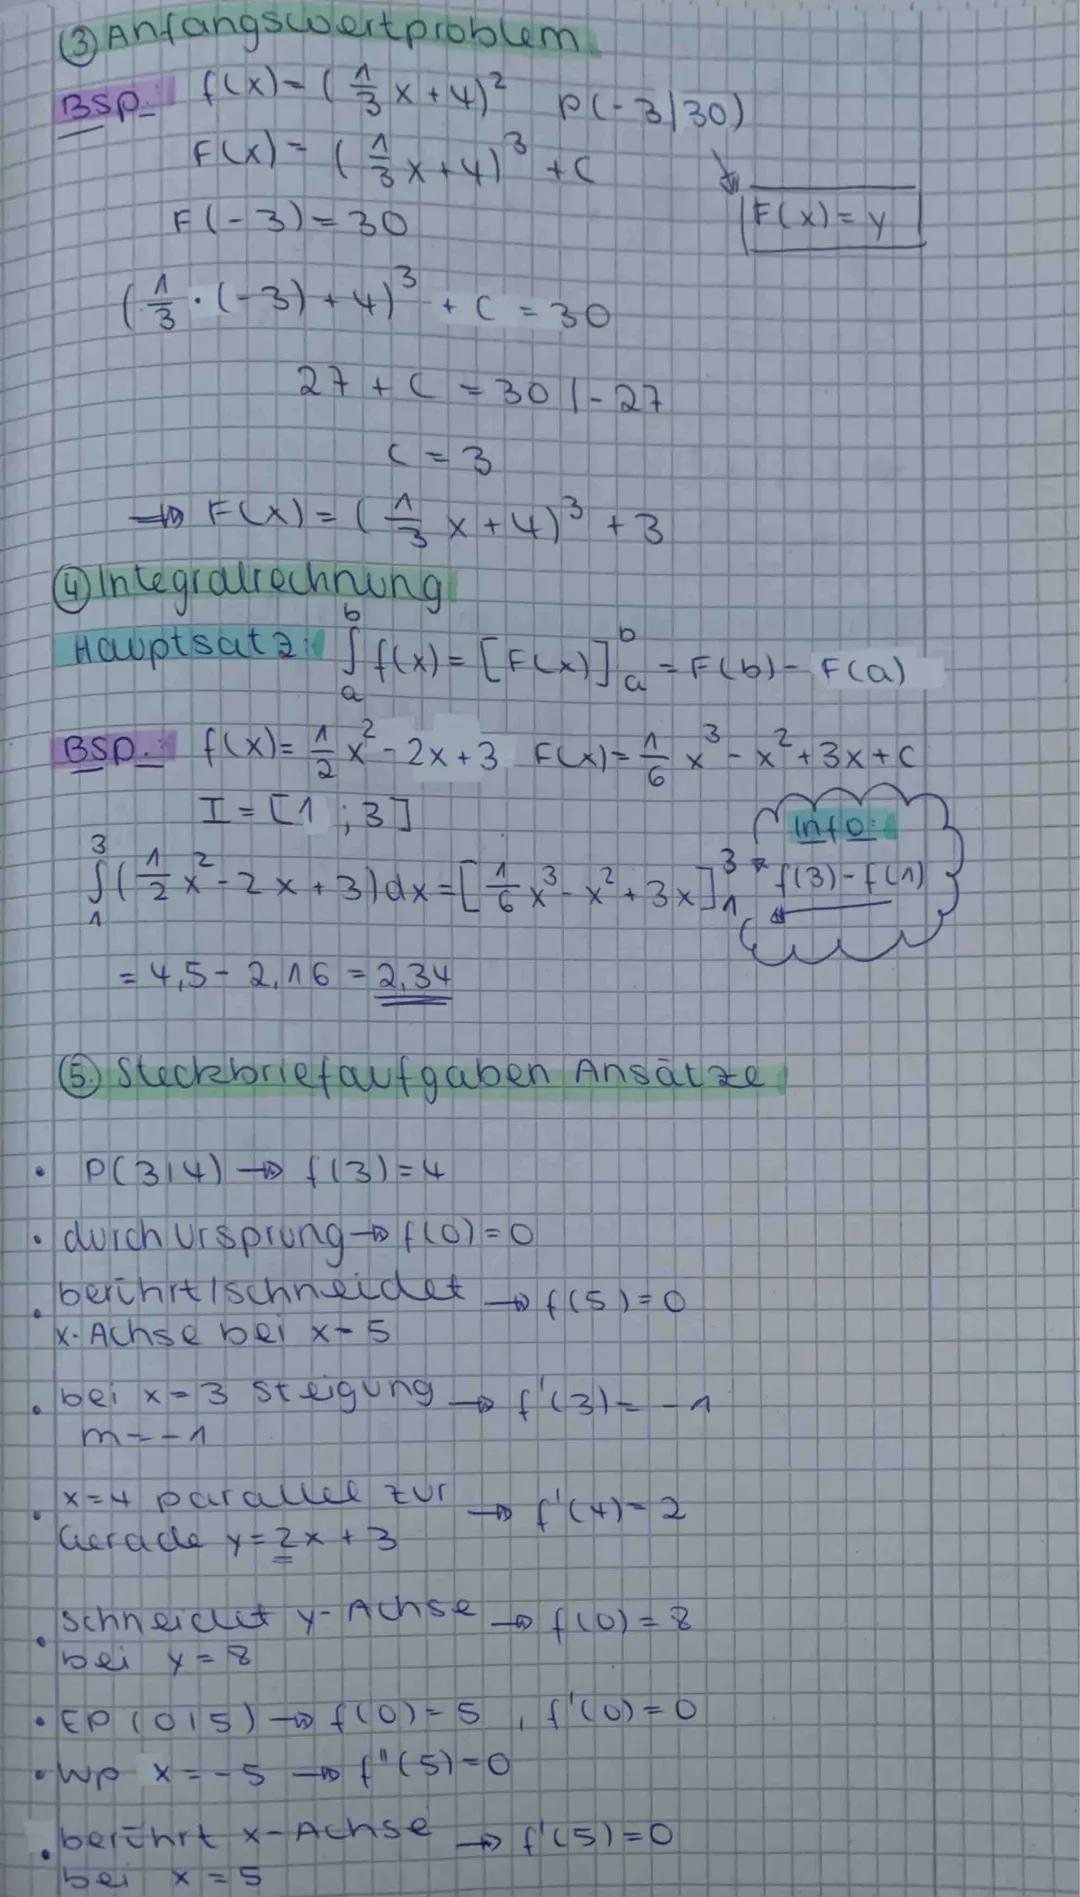 ③ Anfangswertproblem
Bsp.: f(x) = (1/3 x + 4)² P(-3|30)
F(x) = (1/3 x + 4)³ + C
F(x) = y
F(-3) = 30
(1/3 · (-3) + 4)³ + C = 30
27 + C = 30 | -27
C = 3
→ F(x) = (1/3 x + 4)³ + 3
④ Integralrechnung
Hauptsatz: ∫ₐᵇ f(x) = [F(x)]ₐᵇ = F(b) - F(a)
Bsp.: f(x) = 1/2 x² - 2x + 3 F(x) = 1/6 x³ - x² + 3x + C
I = [1 ; 3]
Info:
∫₁³ (1/2 x² - 2x + 3) dx = [1/6 x³ - x² + 3x]₁³ f(3) - f(1)
= 4,5 - 2,16 = 2,34
⑤ Steckbriefaufgaben Ansätze
• P(3|4) → f(3) = 4
• durch Ursprung → f(0) = 0
• berührt/schneidet → f(5) = 0
x-Achse bei x = 5
• bei x = 3 Steigung → f'(3) = -1
m = -1
• x = 4 parallel zur → f'(4) = 2
Gerade y = 2x + 3
• schneidet y-Achse → f(0) = 8
bei y = 8
• EP (0|5) → f(0) = 5, f'(0) = 0
• WP x = -5 → f''(5) = 0
• berührt x-Achse → f'(5) = 0
bei x = 5